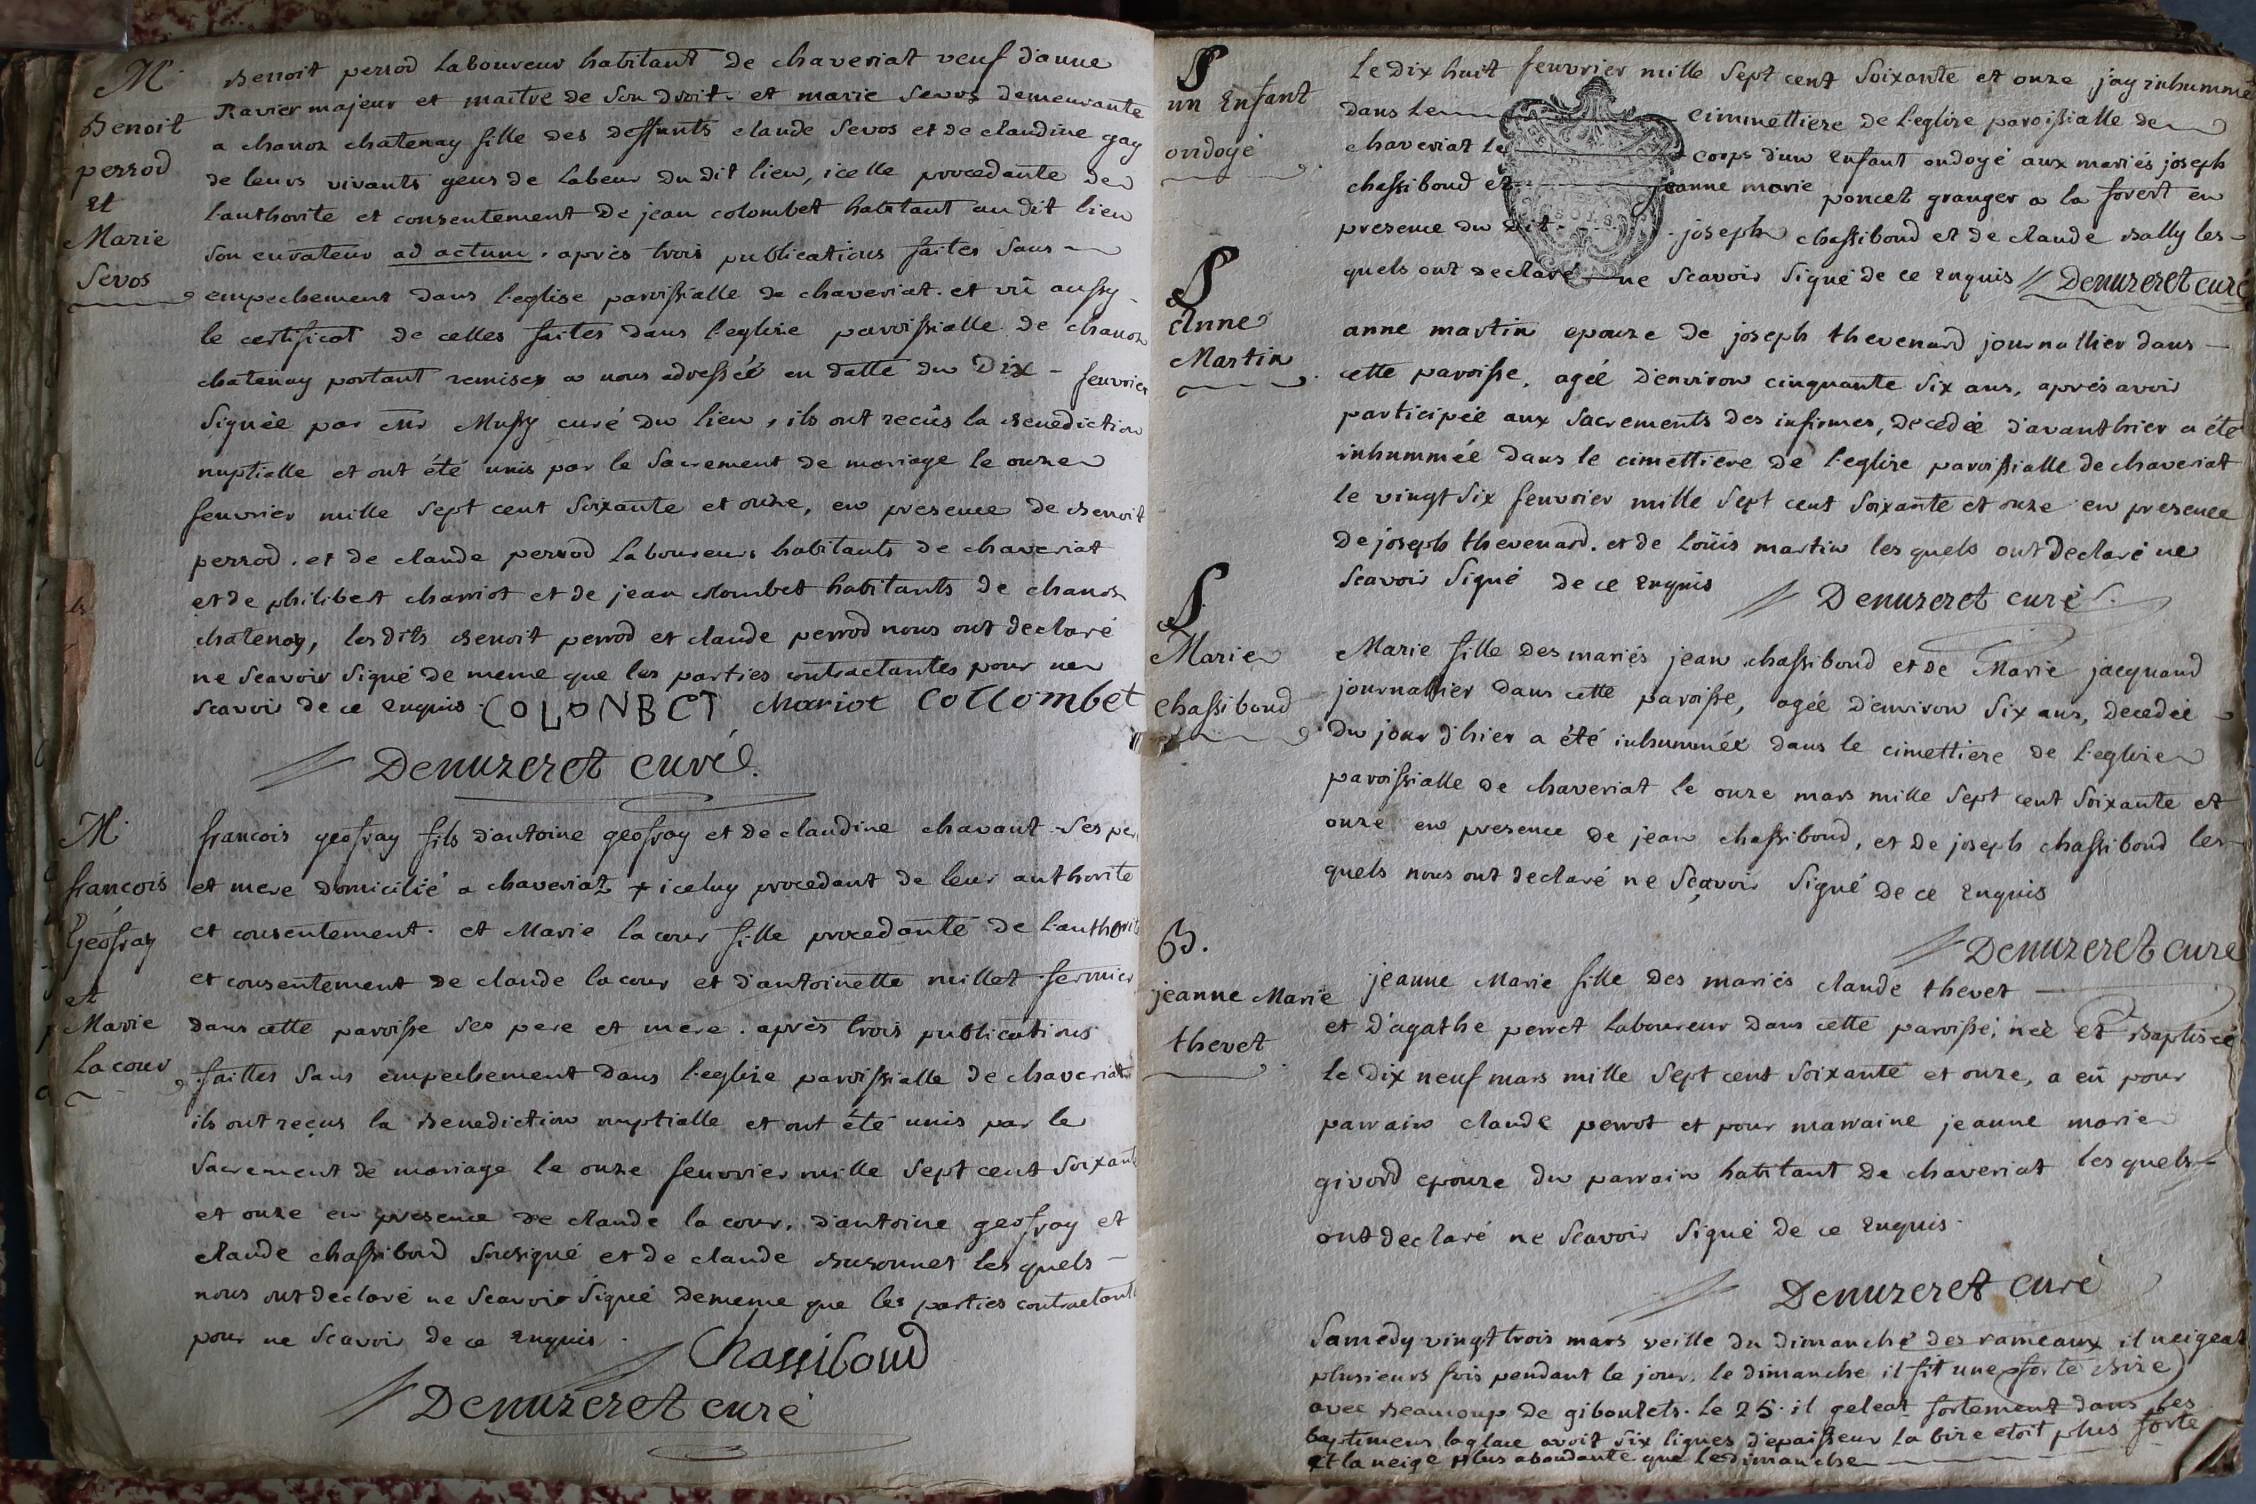 M.
Benoit
perrod
Et
Marie
Sevos
Benoit perrod Laboureur habitant De chaveriat veuf d'anne
Ravier majeur et maitre de Son Droit. et marie Sevos demeurante
a chanoz chatenay fille des deffunts claude Sevos et de claudine gay
de leurs vivants gens de Labeur Du dit lieu, icelle procedante de
l'authorite et consentement De jean colombet habitant au dit lieu
Son curateur ad actum. après trois publications faites Sans
empechement dans l'eglise paroissialle de chaveriat. et vû aussy
le certificat de celles faites dans l'eglize paroissialle de chanoz
chatenay portant remises a nous adressée en datte du Dix - feuvrier
Signée par mr Mussy curé Du lieu, ils ont recûs la Benediction
nuptialle et ont été unis par le Sacrement de mariage le onze
feuvrier mille Sept cent Soixante et onze, en presence de Benoit
perrod. et de claude perrod Laboureurs habitants de chaveriat
et de philibert charriot et de jean colombet habitants de chanoz
chatenay, les dits Benoit perrod et claude perrod nous ont declaré
ne Scavoir Signé de meme que les parties contractantes pour ne
Scavoir de ce Enquis. COLONBET chariot COLLombet
Denuzeret curé.
M.
françois
Geofray
et
Marie
La cour
francois geofray fils d'antoine geofray et de claudine chavant Ses pere
et mere Domicilié a chaveriat + iceluy procedant de leur authorite
et consentement. et Marie la cour fille procedante de l'authorite
et consentement de claude la cour et d'antoinette millet fermier
dans cette paroisse Ses pere et mere. après trois publications
faittes Sans empechement dans l'eglize paroissialle de chaveriat
ils ont reçus la Benediction nuptialle et ont été unis par le
Sacrement de mariage le onze feuvrier mille Sept cent Soixante
et onze en presence de claude la cour, d'antoine geofray et
claude chassiboud Sousigné et de claude Buzonnet les quels
nous ont declaré ne Scavoir Signé de meme que les parties contractantes
pour ne Scavoir de ce Enquis.
Chassiboud
Denuzeret curé
S
un Enfant
ondoyé
Le Dix huit feuvrier mille Sept cent Soixante et onze j'ay inhummé
dans le cimmettiere de l'eglize paroissialle de
chaveriat le corps d'un Enfant ondoyé aux mariés joseph
chassiboud et jeanne marie poncet granger a la forest en
presence du dit joseph chassiboud et de claude Bally les
quels ont declaré ne Scavoir Signé de ce Enquis Denuzeret curé
S
Anne
Martin
anne martin epouze de joseph thevenard journallier dans
cette paroisse, agée d'environ cinquante Six ans, après avoir
participée aux Sacrements des infirmes, decedée d'avant hier a été
inhummée dans le cimettiere de l'eglize paroissialle de chaveriat
le vingt Six feuvrier mille Sept cent Soixante et onze en presence
De joseph thevenard. et de Loüis martin les quels ont declaré ne
Scavoir Signé de ce Enquis
Denuzeret curé
S.
Marie
chassiboud
Marie fille Des mariés jean chassiboud et de Marie jacquand
journallier dans cette paroisse, agée d'environ Six ans, decedée
Du jour d'hier a été inhummée dans le cimettiere de l'eglize
paroissialle de chaveriat le onze mars mille Sept cent Soixante et
onze en presence de jean chassiboud, et de joseph chassiboud les
quels nous ont declaré ne Sçavoir Signé De ce Enquis
Denuzeret curé
B.
jeanne Marie
thevet
jeanne Marie fille des mariés claude thevet
et d'agathe perret Laboureur dans cette paroisse, née et Baptisée
le dix neuf mars mille Sept cent Soixante et onze, a eû pour
parrain claude perrot et pour marraine jeanne marie
givord epouze du parrain habitant de chaveriat les quels
ont declaré ne Scavoir Signé de ce Enquis.
Denuzeret curé
Samedy vingt trois mars veille du dimanche des rameaux il neigeat
plusieurs fois pendant le jour, le dimanche il fit une forte Bize
avec Beaucoup de giboulets. le 25. il geleat fortement dans les
la glace avoit Six lignes d'epaisseur la bize etoit plus forte
et la neige plus abondante que le dimanche